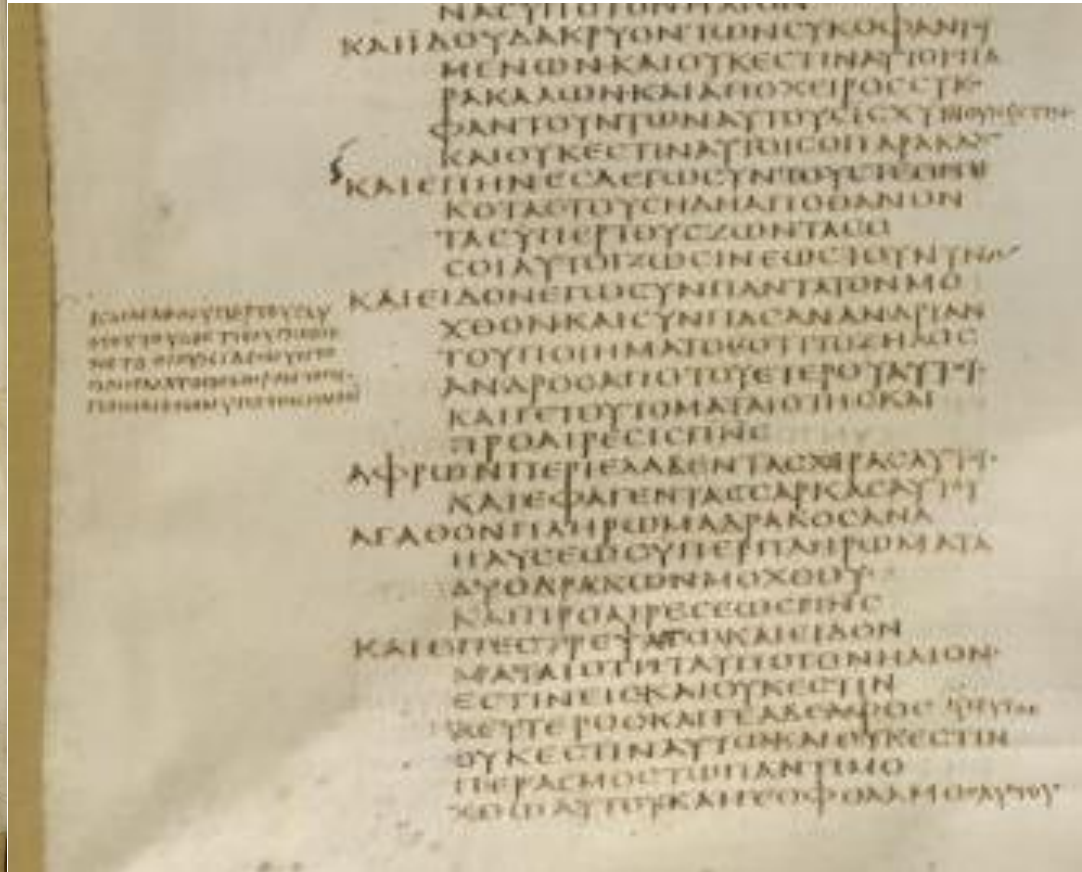 ΝΑϹΥΠΟΤΟΝΗΛΙΟΝ
ΚΑΙΙΔΟΥΔΑΚΡΥΟΝΤΩΝϹΥΚΟΦΑΝΤΟΥ
ΜΕΝΩΝΚΑΙΟΥΚΕϹΤΙΝΑΥΤΟΙϹΠΑ
ΡΑΚΑΛΩΝΚΑΙΑΠΟΧΕΙΡΟϹϹΥΚΟ
ΦΑΝΤΟΥΝΤΩΝΑΥΤΟΥϹΙϹΧΥϹ
ΚΑΙΟΥΚΕϹΤΙΝΑΥΤΟΙϹΟΠΑΡΑΚΑΛΩ
ΚΑΙΕΠΗΝΕϹΑΕΓΩϹΥΝΤΟΥϹΤΕΘΝΗ
ΚΟΤΑϹΤΟΥϹΗΔΗΑΠΟΘΑΝΟΝ
ΤΑϹΥΠΕΡΤΟΥϹΖΩΝΤΑϹΟ
ϹΟΙΑΥΤΟΙΖΩϹΙΝΕΩϹΤΟΥΝΥΝ
ΚΑΙΕΙΔΟΝΕΓΩϹΥΝΠΑΝΤΑΤΟΝΜΟ
ΧΘΟΝΚΑΙϹΥΝΠΑϹΑΝΑΝΔΡΙΑΝ
ΤΟΥΠΟΙΗΜΑΤΟϹΟΤΙΤΟΖΗΛΟϹ
ΑΝΔΡΟϹΑΠΟΤΟΥΕΤΕΡΟΥΑΥΤΟΥ
ΚΑΙΓΕΤΟΥΤΟΜΑΤΑΙΟΤΗϹΚΑΙ
ΠΡΟΑΙΡΕϹΙϹΠΝϹ
ΑΦΡΩΝΠΕΡΙΕΛΑΒΕΝΤΑϹΧΙΡΑϹΑΥΤΟΥ
ΚΑΙΕΦΑΓΕΝΤΑϹϹΑΡΚΑϹΑΥΤΟΥ
ΑΓΑΘΟΝΠΛΗΡΩΜΑΔΡΑΚΟϹΑΝΑ
ΠΑΥϹΕΩϹΥΠΕΡΠΛΗΡΩΜΑΤΑ
ΔΥΟΔΡΑΚΩΝΜΟΧΘΟΥ
ΚΑΙΠΡΟΑΙΡΕϹΕΩϹΠΝϹ
ΚΑΙΕΠΕϹΤΡΕΨΑΕΓΩΚΑΙΕΙΔΟΝ
ΜΑΤΑΙΟΤΗΤΑΥΠΟΤΟΝΗΛΙΟΝ
ΕϹΤΙΝΕΙϹΚΑΙΟΥΚΕϹΤΙΝ
ΔΕΥΤΕΡΟϹΚΑΙΓΕΑΔΕΛΦΟϹ
ΟΥΚΕϹΤΙΝΑΥΤΩΚΑΙΟΥΚΕϹΤΙΝ
ΠΕΡΑϹΜΟϹΤΩΠΑΝΤΙΜΟ
ΧΘΩΑΥΤΟΥΚΑΙΓΕΟΦΘΑΛΜΟϹΑΥΤΟΥ